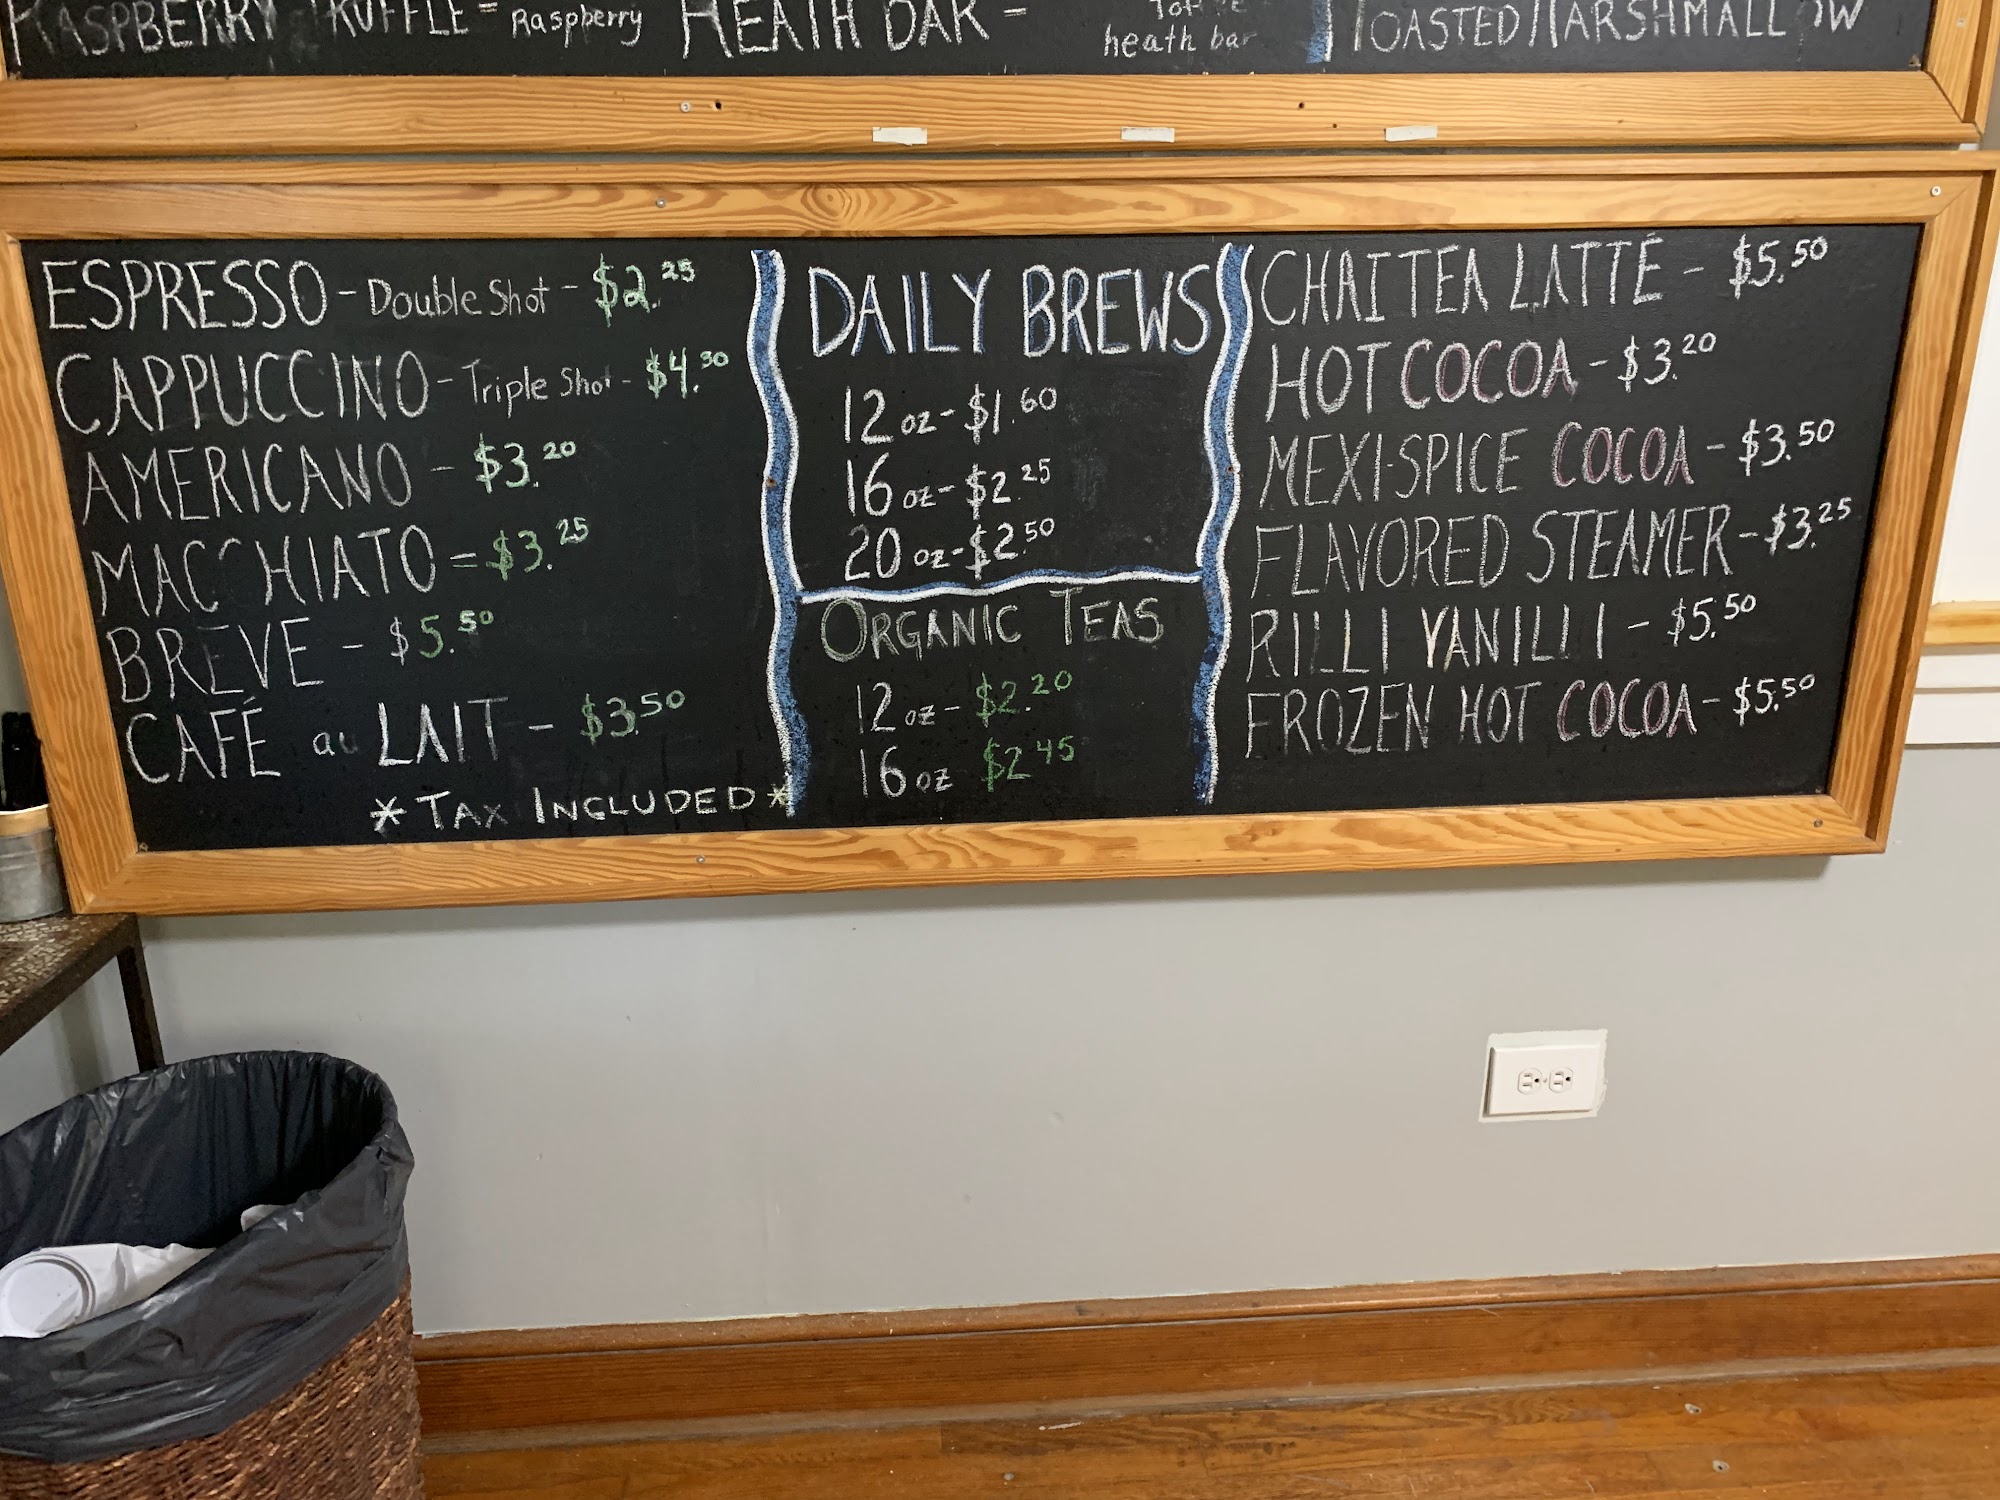 RASPBERRY TRUFFLE = Raspberry
HEATH BAR =
heath bar
TOASTED MARSHMALLOW
ESPRESSO - Double Shot - $2.25
CAPPUCCINO - Triple Shot - $4.30
AMERICANO - $3.20
MACCHIATO = $3.25
BREVE - $5.50
CAFÉ au LAIT - $3.50
*TAX INCLUDED*
DAILY BREWS
12 oz - $1.60
16 oz - $2.25
20 oz - $2.50
ORGANIC TEAS
12 oz - $2.20
16 oz $2.45
CHAI TEA LATTÉ - $5.50
HOT COCOA - $3.20
MEXI-SPICE COCOA - $3.50
FLAVORED STEAMER - $3.25
RILLI VANILLI - $5.50
FROZEN HOT COCOA - $5.50